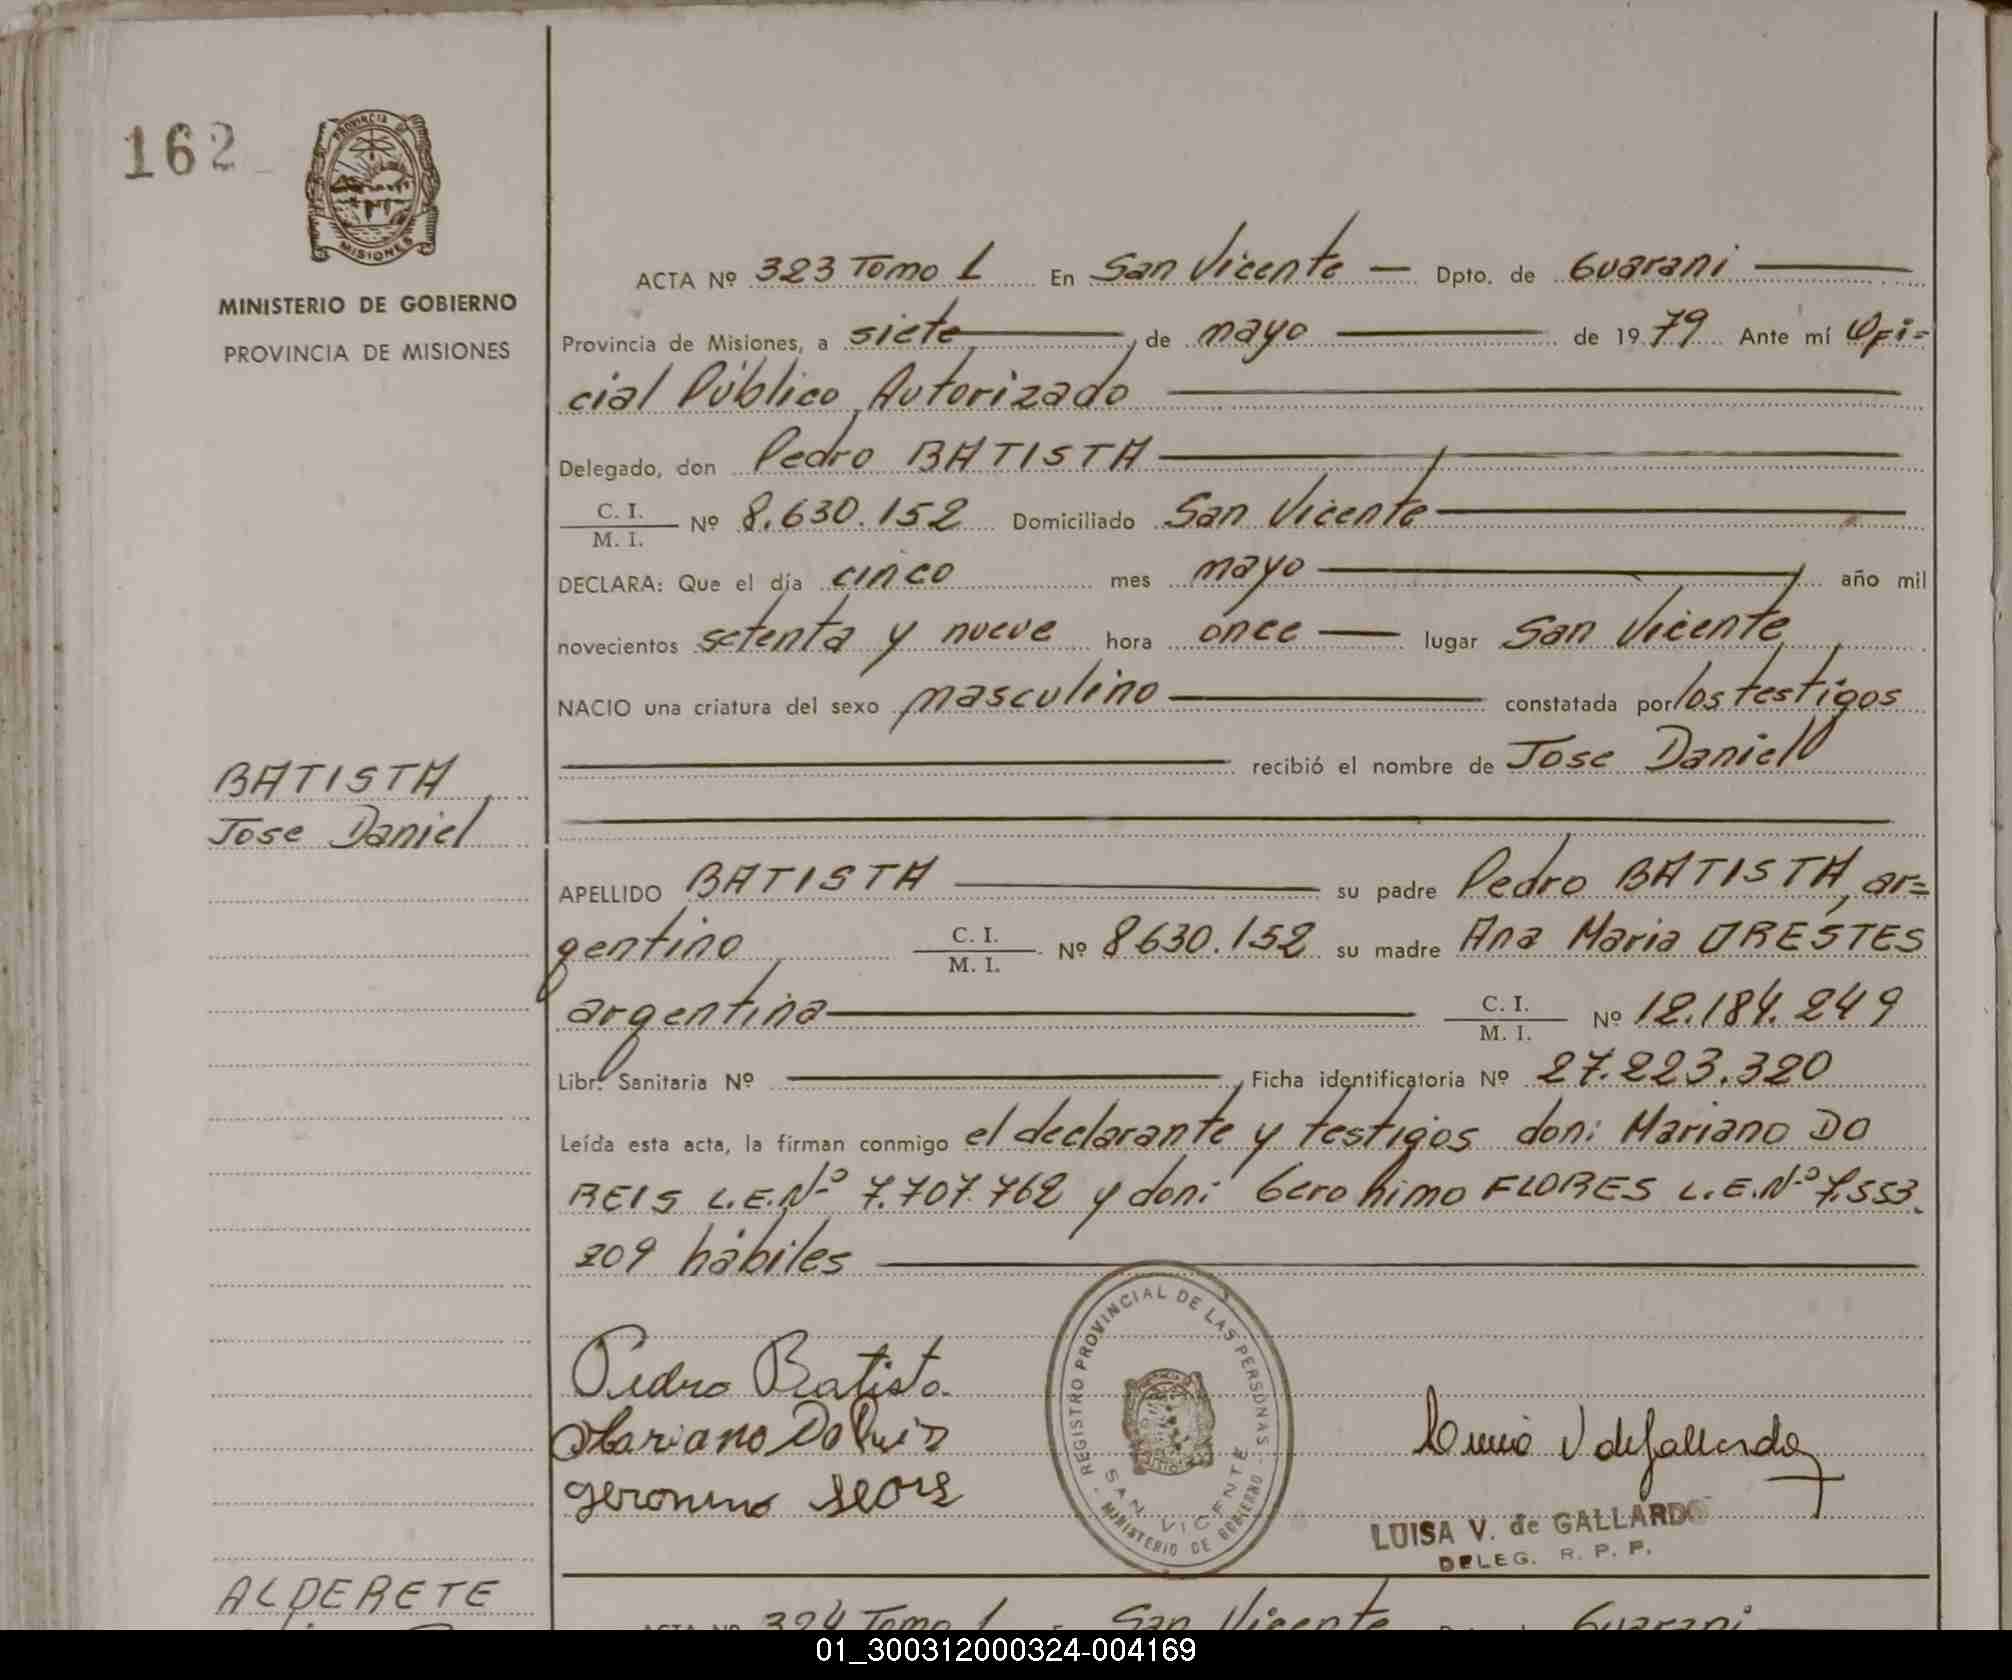 162
PROVINCIA DE
MISIONES
MINISTERIO DE GOBIERNO
PROVINCIA DE MISIONES
ACTA Nº 323 Tomo 1 En San Vicente — Dpto. de Guarani
Provincia de Misiones, a siete de mayo de 1979 Ante mí Ofi=
cial Público Autorizado
Delegado, don Pedro BATISTA
C. I.
M. I. Nº 8.630.152 Domiciliado San Vicente
DECLARA: Que el día cinco mes mayo año mil
novecientos setenta y nueve hora once — lugar San Vicente
NACIO una criatura del sexo masculino constatada por los testigos
recibió el nombre de Jose Daniel
BATISTA
Jose Daniel
APELLIDO BATISTA su padre Pedro BATISTA, ar=
gentino C. I. M. I. Nº 8630.152 su madre Ana Maria ORESTES
argentina C. I. M. I. Nº 12.184.249
Libr. Sanitaria Nº Ficha identificatoria Nº 27.223.320
Leída esta acta, la firman conmigo el declarante y testigos don: Mariano DO
REIS L.E.Nº 7.707.762 y don: Geronimo FLORES L.E.Nº 7.553.
209 hábiles
Pedro Batista
Mariano Do Reis
Geronimo
REGISTRO PROVINCIAL DE LAS PERSONAS
SAN VICENTE
MINISTERIO DE GOBIERNO
V de Gallardo
LUISA V. de GALLARDO
DELEG. R. P. P.
ALDERETE
ACTA Nº 324 Tomo 1 San Vicente Guarani
01_300312000324-004169